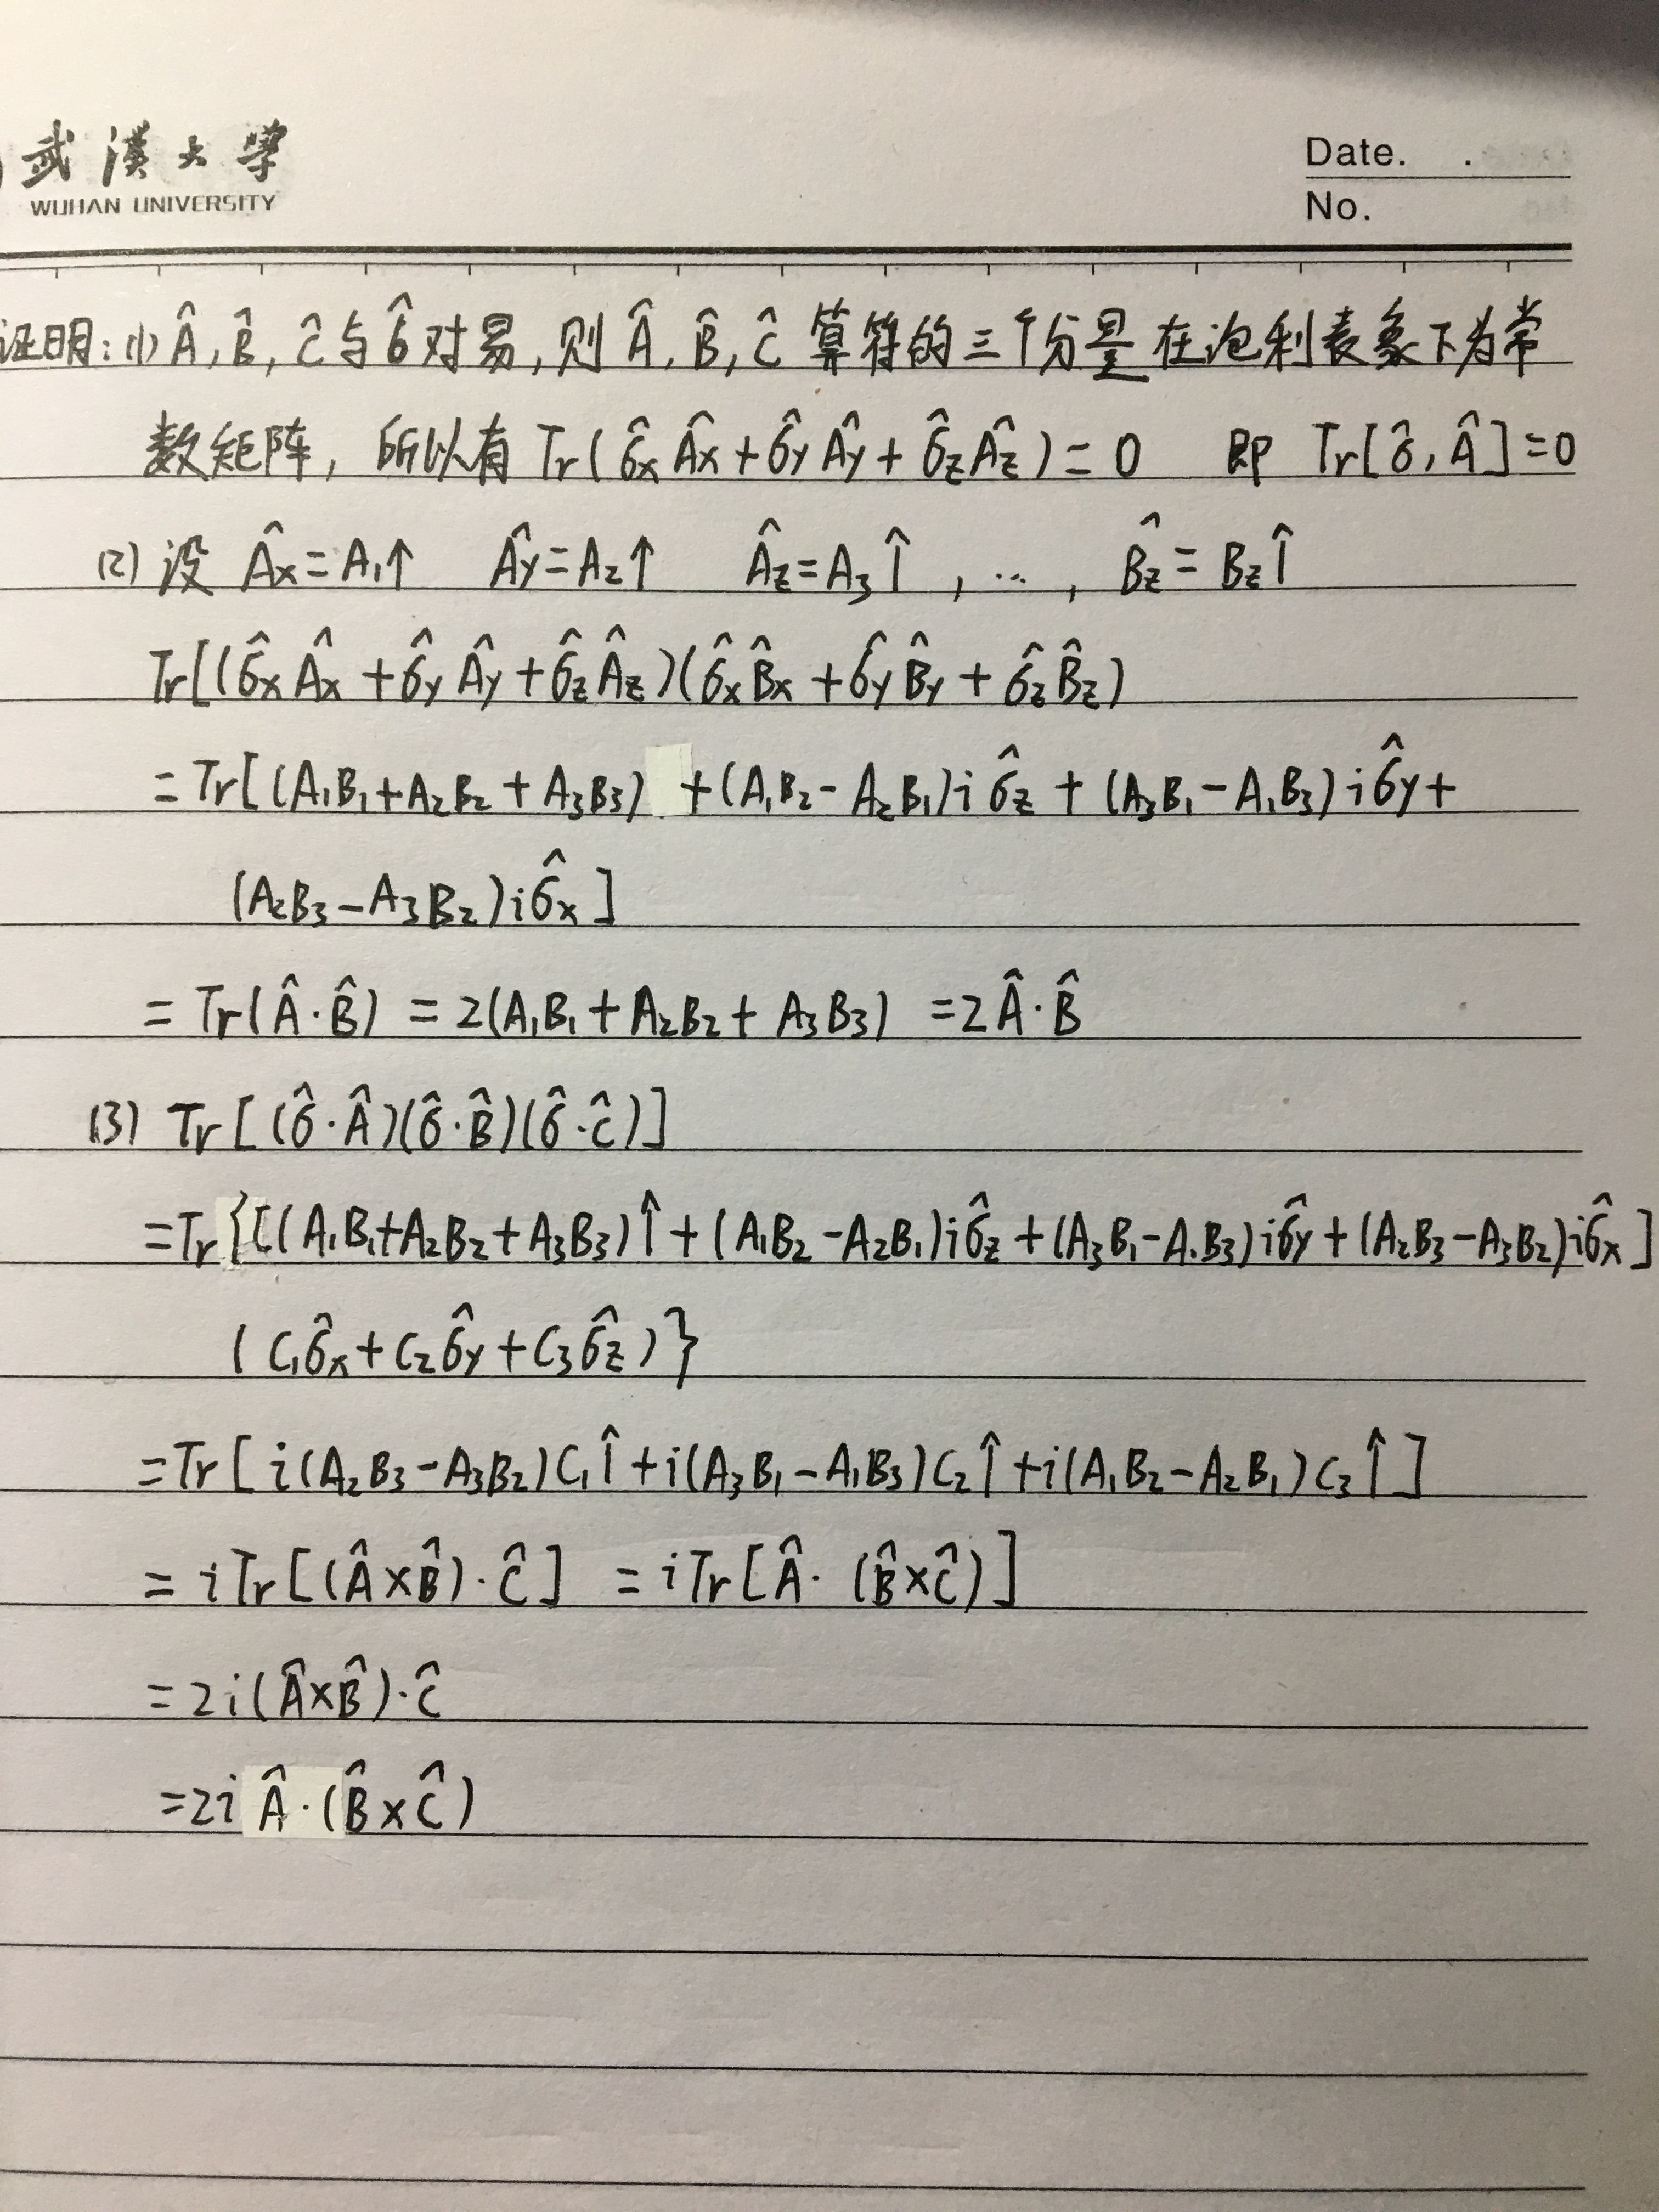 武漢大學
WUHAN UNIVERSITY
Date. .
No.
证明:(1) Â, B̂, Ĉ与σ̂对易,则 Â, B̂, Ĉ 算符的三个分量在泡利表象下为常
数矩阵, 所以有 Tr(σ̂x Âx + σ̂y Ây + σ̂z Âz) = 0 即 Tr[σ̂, Â] = 0
(2) 设 Âx = A₁↑ Ây = A₂↑ Âz = A₃Î , … , B̂z = BzÎ
Tr[(σ̂x Âx + σ̂y Ây + σ̂z Âz)(σ̂x B̂x + σ̂y B̂y + σ̂z B̂z)
= Tr[(A₁B₁+A₂B₂+A₃B₃) +(A₁B₂-A₂B₁)iσ̂z + (A₃B₁-A₁B₃)iσ̂y+
(A₂B₃-A₃B₂)iσ̂x]
= Tr(Â·B̂) = 2(A₁B₁+A₂B₂+A₃B₃) =2Â·B̂
(3) Tr[(σ̂·Â)(σ̂·B̂)(σ̂·Ĉ)]
=Tr{[(A₁B₁+A₂B₂+A₃B₃)Î+(A₁B₂-A₂B₁)iσ̂z+(A₃B₁-A₁B₃)iσ̂y+(A₂B₃-A₃B₂)iσ̂x]
(C₁σ̂x+C₂σ̂y+C₃σ̂z)}
=Tr[i(A₂B₃-A₃B₂)C₁Î+i(A₃B₁-A₁B₃)C₂Î+i(A₁B₂-A₂B₁)C₃Î]
= iTr[(Â×B̂)·Ĉ] = iTr[Â·(B̂×Ĉ)]
=2i(Â×B̂)·Ĉ
=2iÂ·(B̂×Ĉ)